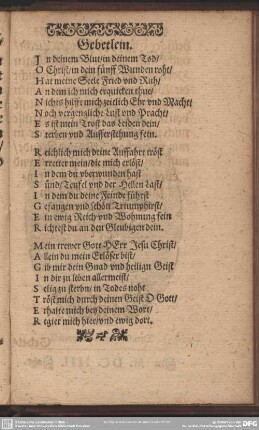 Gebetlein.
In deinem Blut/in deinem Tod/
O Christ/in dein fünff Wunden roht/
Hat meine Seele Fried vnd Ruh/
An dem ich mich erquicken thue/
Nichts hilfft mich zeitlich Ehr vnd Macht/
Noch vergengliche Lust vnd Pracht/
Es ist mein Trost das Leiden dein/
Sterben vnd Aufferstehung fein.
Reichlich mich deine Auffahrt tröst
Erretter mein/die mich erlöst/
In dem du vberwunden hast
Sünd/Teufel vnd der Hellen Last/
In dem du deine Feinde führst
Gefangen vnd schön Triumphirst/
Ein ewig Reich vnd Wohnung fein
Richtest du an den Gleubigen dein.
Mein trewer Gott HErr Jesu Christ/
Allein du mein Erlöser bist/
Gib mir dein Gnad vnd heilign Geist
In dir zu leben allermeist/
Selig zu sterbn/ in Todes noht
Tröst mich durch deinen Geist O Gott/
Erhalte mich bey deinem Wort/
Regier mich hier/vnd ewig dort.